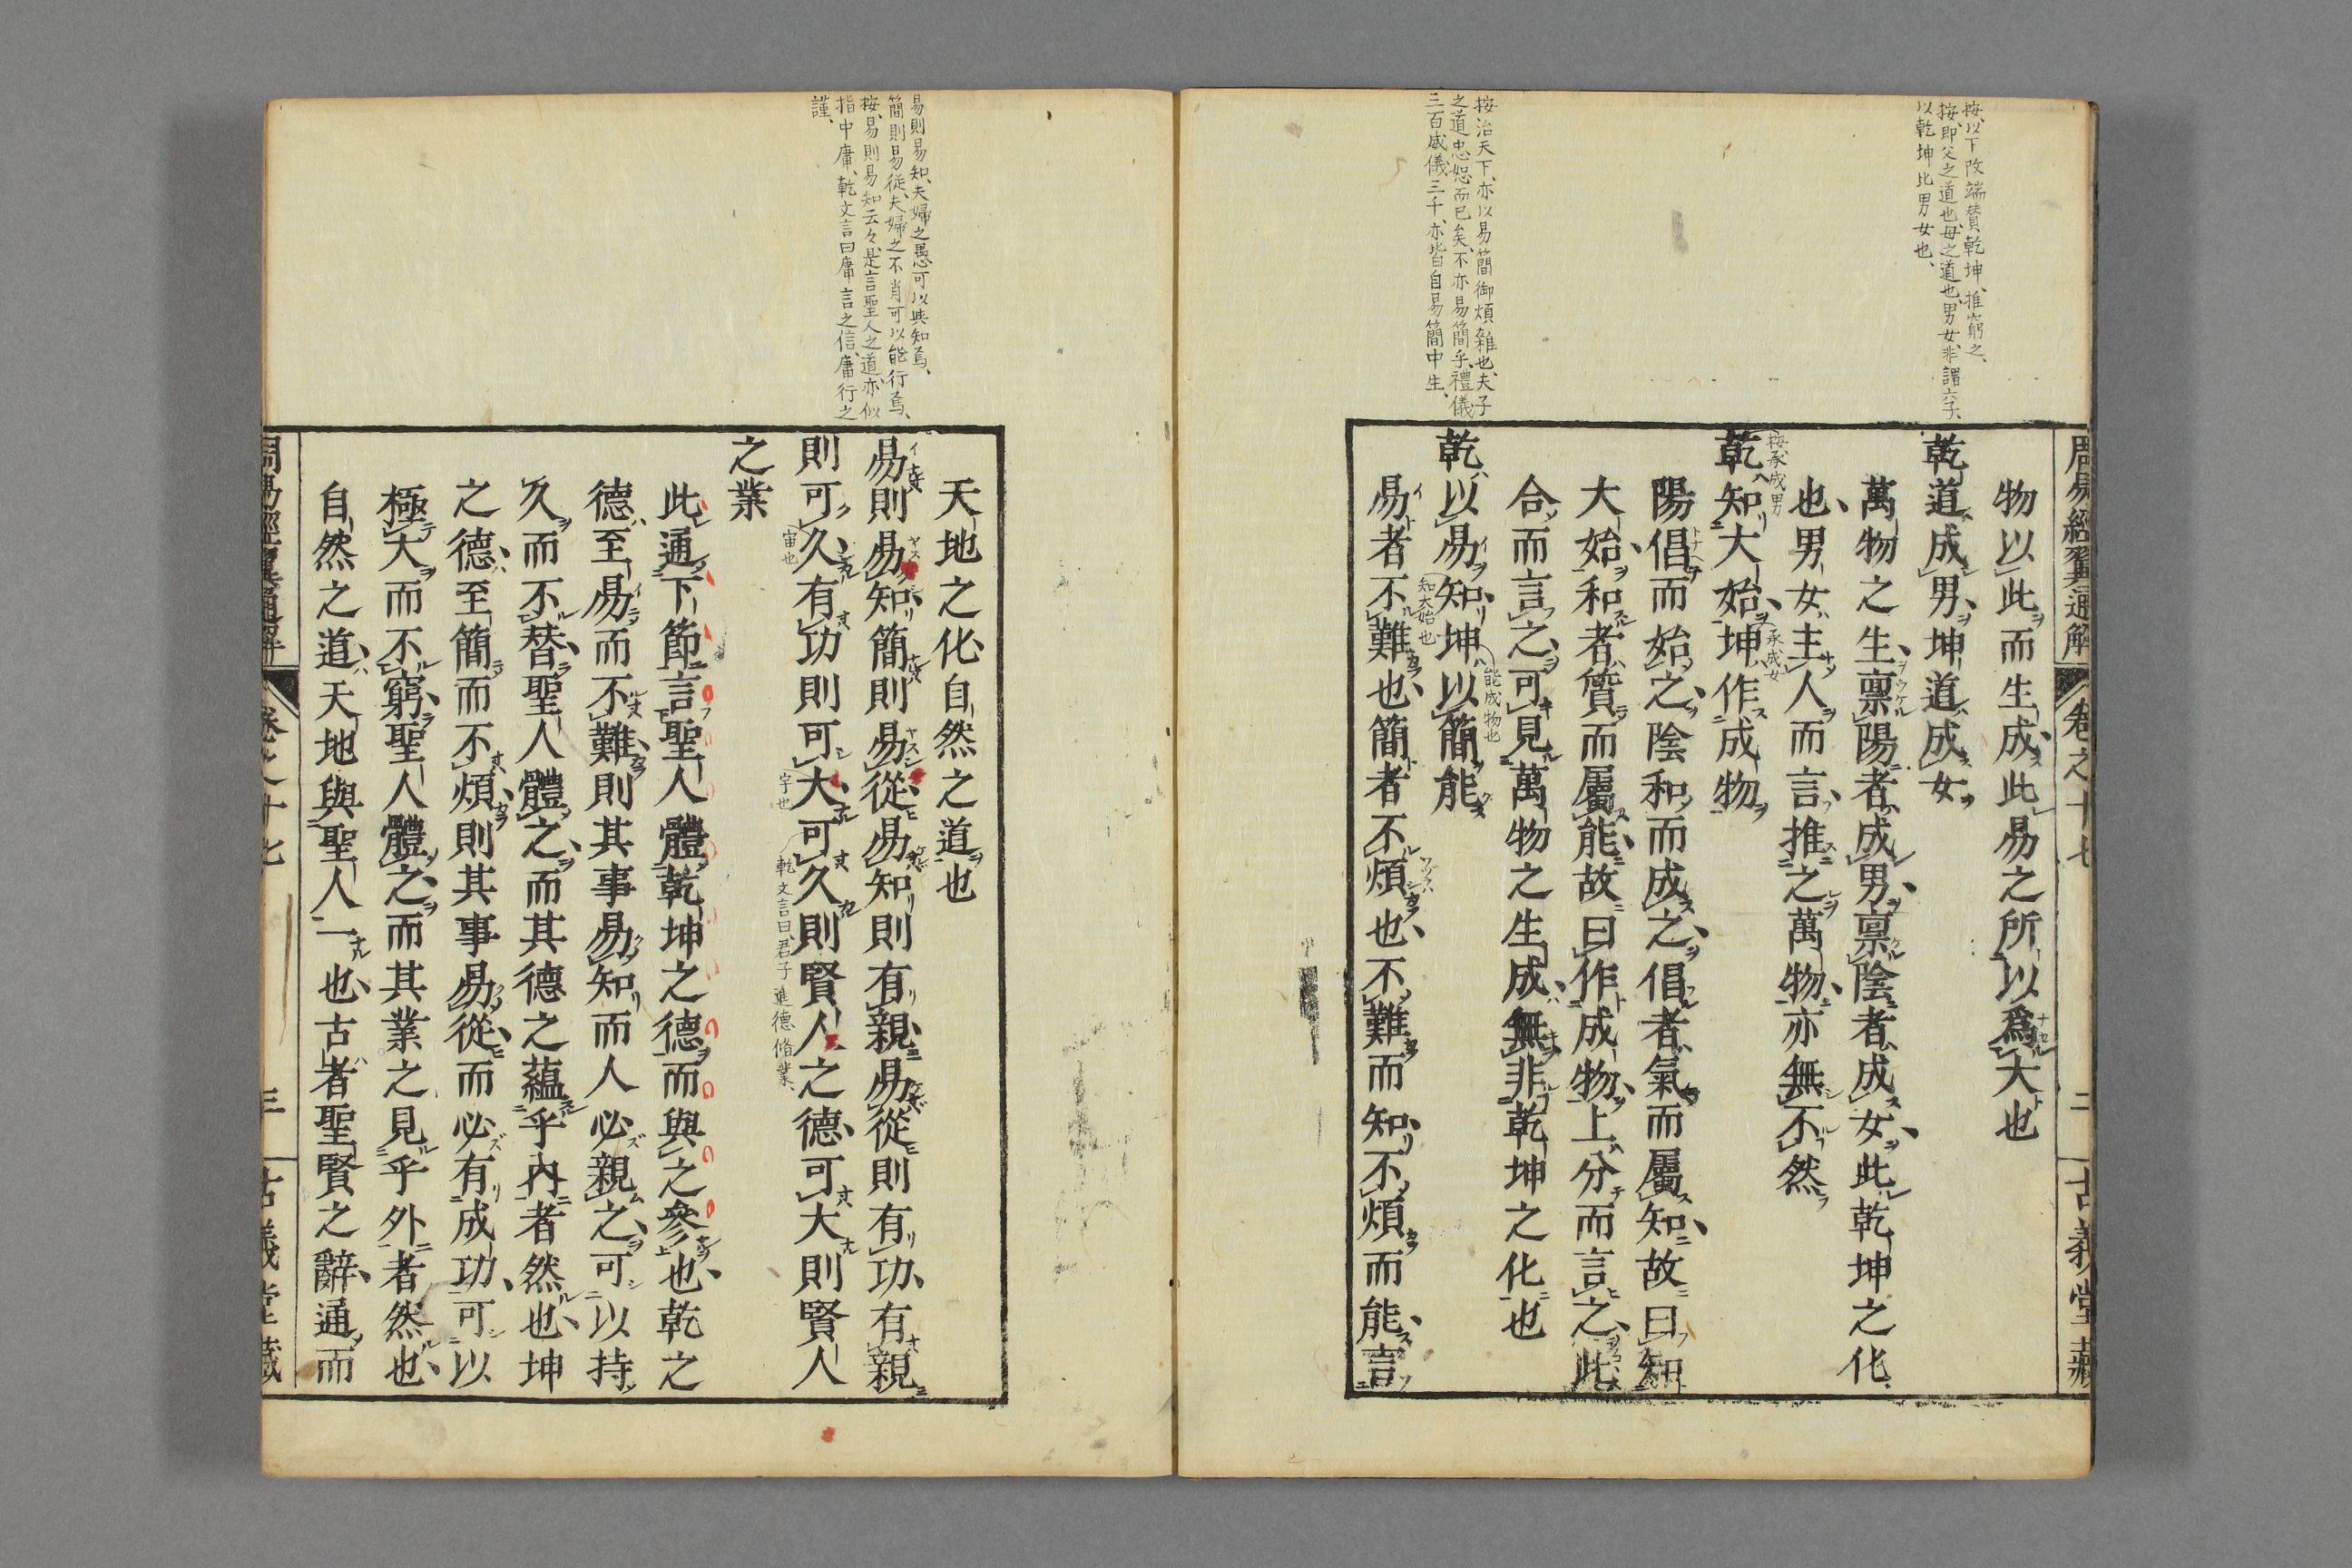 周易經翼通解
卷之十七
二
古義堂藏
按、以下改端賛乾坤、推窮之、
按、即父之道也、母之道也、男女、非謂六子、
以乾坤比男女也、
物以此而生成此易之所以爲大也
乾道成男坤道成女
萬物之生禀陽者成男禀陰者成女此乾坤之化
也男女主人而言推之萬物亦無不然
按、承成男
乾知大始坤作成物
承成女
陽倡而始之陰和而成之倡者氣而屬知故曰知
大始和者質而屬能故曰作成物上分而言之此
合而言之可見萬物之生成無非乾坤之化也
按治天下、亦以易簡御煩雜也、夫子
之道忠恕而已矣、不亦易簡乎、禮儀
三百威儀三千、亦皆自易簡中生、
乾以易知坤以簡能
知大始也
能成物也
易者不難也簡者不煩也不難而知不煩而能言
天地之化自然之道也
易則易知、夫婦之愚可以與知焉、
簡則易從、夫婦之不肖可以能行焉、
按、易則易知云々、是言聖人之道、亦似
指中庸、乾文言曰庸言之信、庸行之
謹、
易則易知簡則易從易知則有親易從則有功有親
則可久有功則可大可久則賢人之德可大則賢人
宙也
宇也
乾文言曰、君子進德脩業、
之業
此通下節言聖人體乾坤之德而與之參也乾之
德至易而不難則其事易知而人必親之可以持
久而不替聖人體之而其德之蘊乎内者然也坤
之德至簡而不煩則其事易從而必有成功可以
極大而不窮聖人體之而其業之見乎外者然也
自然之道天地與聖人一也古者聖賢之辭通而
周易經翼通解
卷之十七
三
古義堂藏